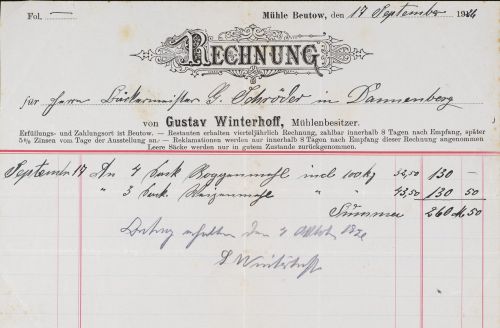 Fol. —
Mühle Beutow, den 17 September 1914
RECHNUNG
für Herrn Bäckermeister G. Schröder in Dannenberg
von Gustav Winterhoff, Mühlenbesitzer.
Erfüllungs- und Zahlungsort ist Beutow. — Restanten erhalten vierteljährlich Rechnung, zahlbar innerhalb 8 Tagen nach Empfang, später
5% Zinsen vom Tage der Ausstellung an. — Reklamationen werden nur innerhalb 8 Tagen nach Empfang dieser Rechnung angenommen
Leere Säcke werden nur in gutem Zustande zurückgenommen.
September 17 An 4 Sack Roggenmehl incl 100 kg 32,50 130 —
" 3 Sack Weizenmehl " " 43,50 130 50
Summa 260 M. 50
Betrag erhalten den 4 Oktob.
G Winterhoff